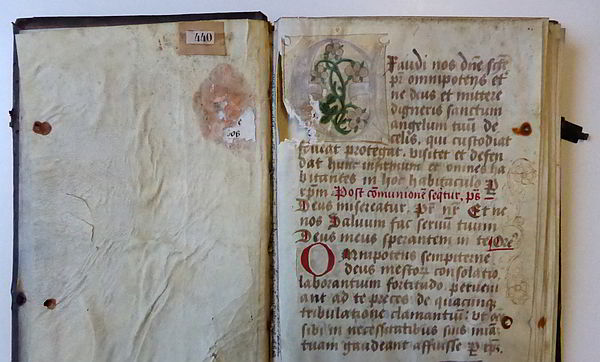 440
e
os
Exaudi nos dn̄e sc̄te
pr̄ omnipotens et̄
ne deus et mittere
digneris sanctum
angelum tuū de
celis, qui custodiat
foueat protegat, visitet et defen
dat hunc infirmum et omnes ha
bitantes in hoc habitaculo P
xp̄m. Post cōmunionē seqtur. ps
Deus misereatur. Pr̄ nr̄ Et ne
nos Saluum fac seruū tuum
Deus meus sperantem in te Ore
Omnipotens sempiterne
deus mestoꝝ consolatio
laborantium fortitudo, perueni
ant ad te preces de quacunqꝫ
tribulatione clamantiū, ut oēs
sibi in necessitatibus suis miāꝫ
tuam gaudeant affuisse P xp̄m.